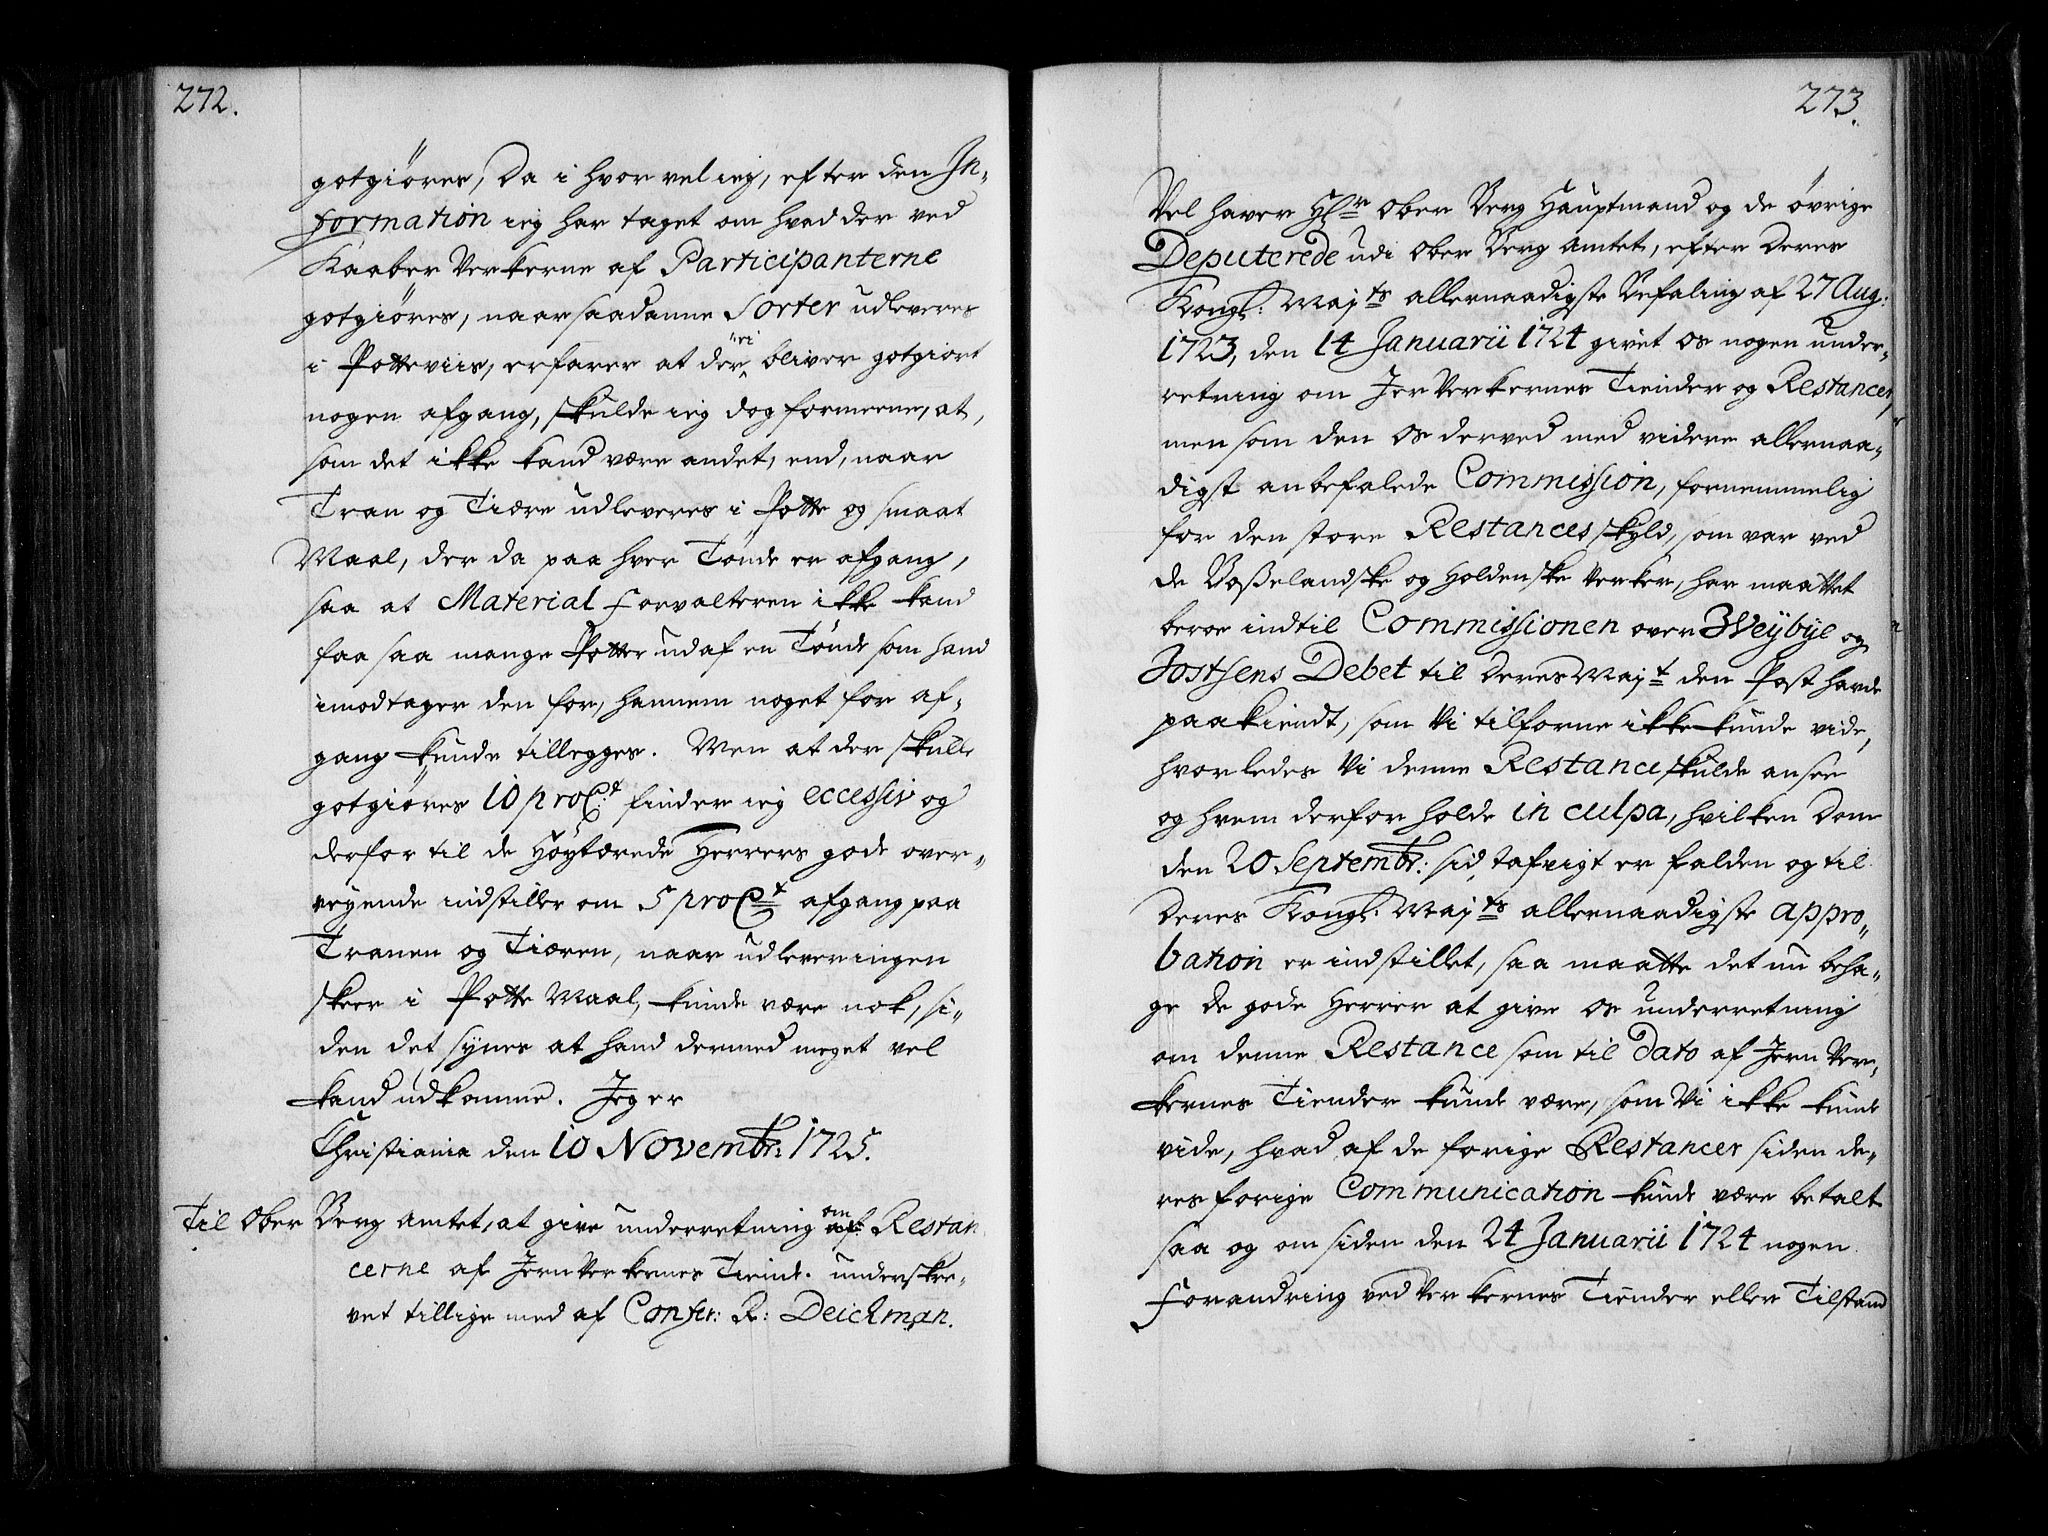 272.
gotgiöres, Da i hvor vel ieg, efter den In„
formation ieg har taget om hvad der ved
Kaaber Verkerne af Participanterne
gotgiöres, naar saadanne Sorter udleveres
i Potteviis, erfarer at der ei bliver gotgiort
nogen afgang, skulde ieg dog formeene, at,
som det ikke kand være andet, end, naar
Tran og Tiære udleveres i Potte og smaat
Maal, der da paa hver Tönde er afgang,
saa at Material Forvalteren ikke kand
faa saa mange Potter ud af en Tönde som hand
imodtager den for, hannem noget for af„
gang kunde tillegges. Men at der skulle
gotgiöres 10 proC:t finder ieg eccessiv og
derfor til de Höytærede Herrers gode over„
veyende indstiller om 5 proCt afgang paa
Tranen og Tiæren, naar udleveringen
skeer i Potte Maal, kunde være nok, si„
den det synes at hand dermed meget vel
kand udkomme. Jeg er
Christiania den 10 Novembr: 1725.
Til Ober Berg Amtet, at give underretning om af Restan
cerne af Jern Verkernes Tiende. underskre„
vet tillige med af Confer: R: Deichman.
273.
Vel haver Hr Ober Berg Hauptmand og de övrige
Deputerede udi Ober Berg Amtet, efter Deres
Kongl: Majts allernaadigste Befaling af 27 Aug:
1723, den 14 Januarii 1724 givet os nogen under„
retning om Jer Verkernes Tiender og Restancer,
men som den os derved med videre allernaa„
digst anbefalede Commission, fornemmelig
for den store Restances skyld, som var ved
de Boßelandske og Holdenske Verker, har maattet
beroe indtil Commissionen over Weÿbÿe og
Jostsens Debet til Deres Majt den Post havde
paakiendt, som Vi tilforne ikke kunde vide,
hvorledes Vi denne Restance skulde ansee
og hvem derfor holde in culpa, hvilken Dom
den 20 Septembr: sidst afvigt er falden og til
Deres Kongl: Majts allernaadigste appro„
bation er indstillet, saa maatte det nu beha„
ge de gode Herrer at give os underretning
om denne Restance som til Dato af Jern Ver„
kernes Tiender kunde være, som Vi ikke kunde
vide, hvad af de forige Restancer siden de„
res forige Communication kunde være betalt
saa og om siden den 24 Januarii 1724 nogen
Forandring ved Verkernes Tiender eller Tilstand